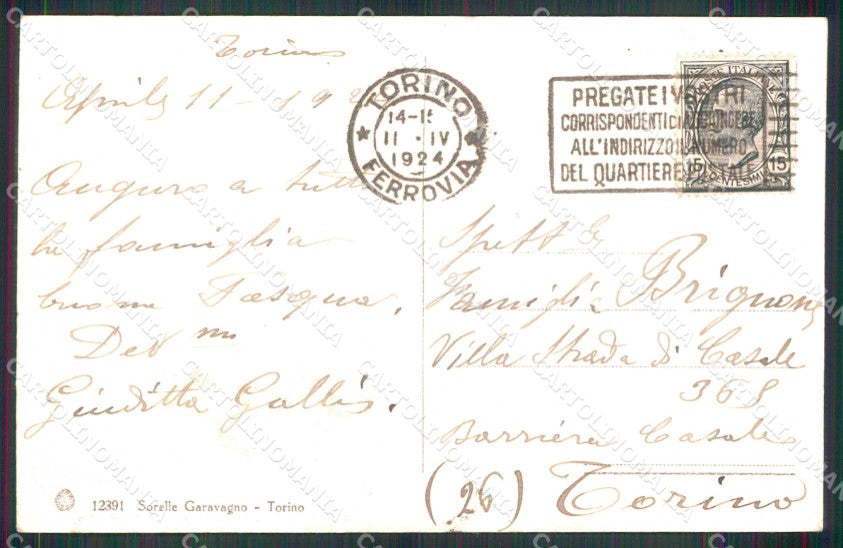 Torino
Aprile 11-192
TORINO
14-15
11 · IV
1924
FERROVIA
PREGATE I VOSTRI
CORRISPONDENTI DI AGGIUNGERE
ALL'INDIRIZZO IL NUMERO
DEL QUARTIERE POSTALE
POSTE ITALIANE
15 15
CENTESIMI
Auguro a tutta
la famiglia
buona Pasqua.
Dev mi
Giuditta Gallis.
Spett e
Famiglia Brignone
Villa Strada di Casale
368
Barriera Casale
(26) Torino
12391 Sorelle Garavagno - Torino
CARTOLINOMANIA